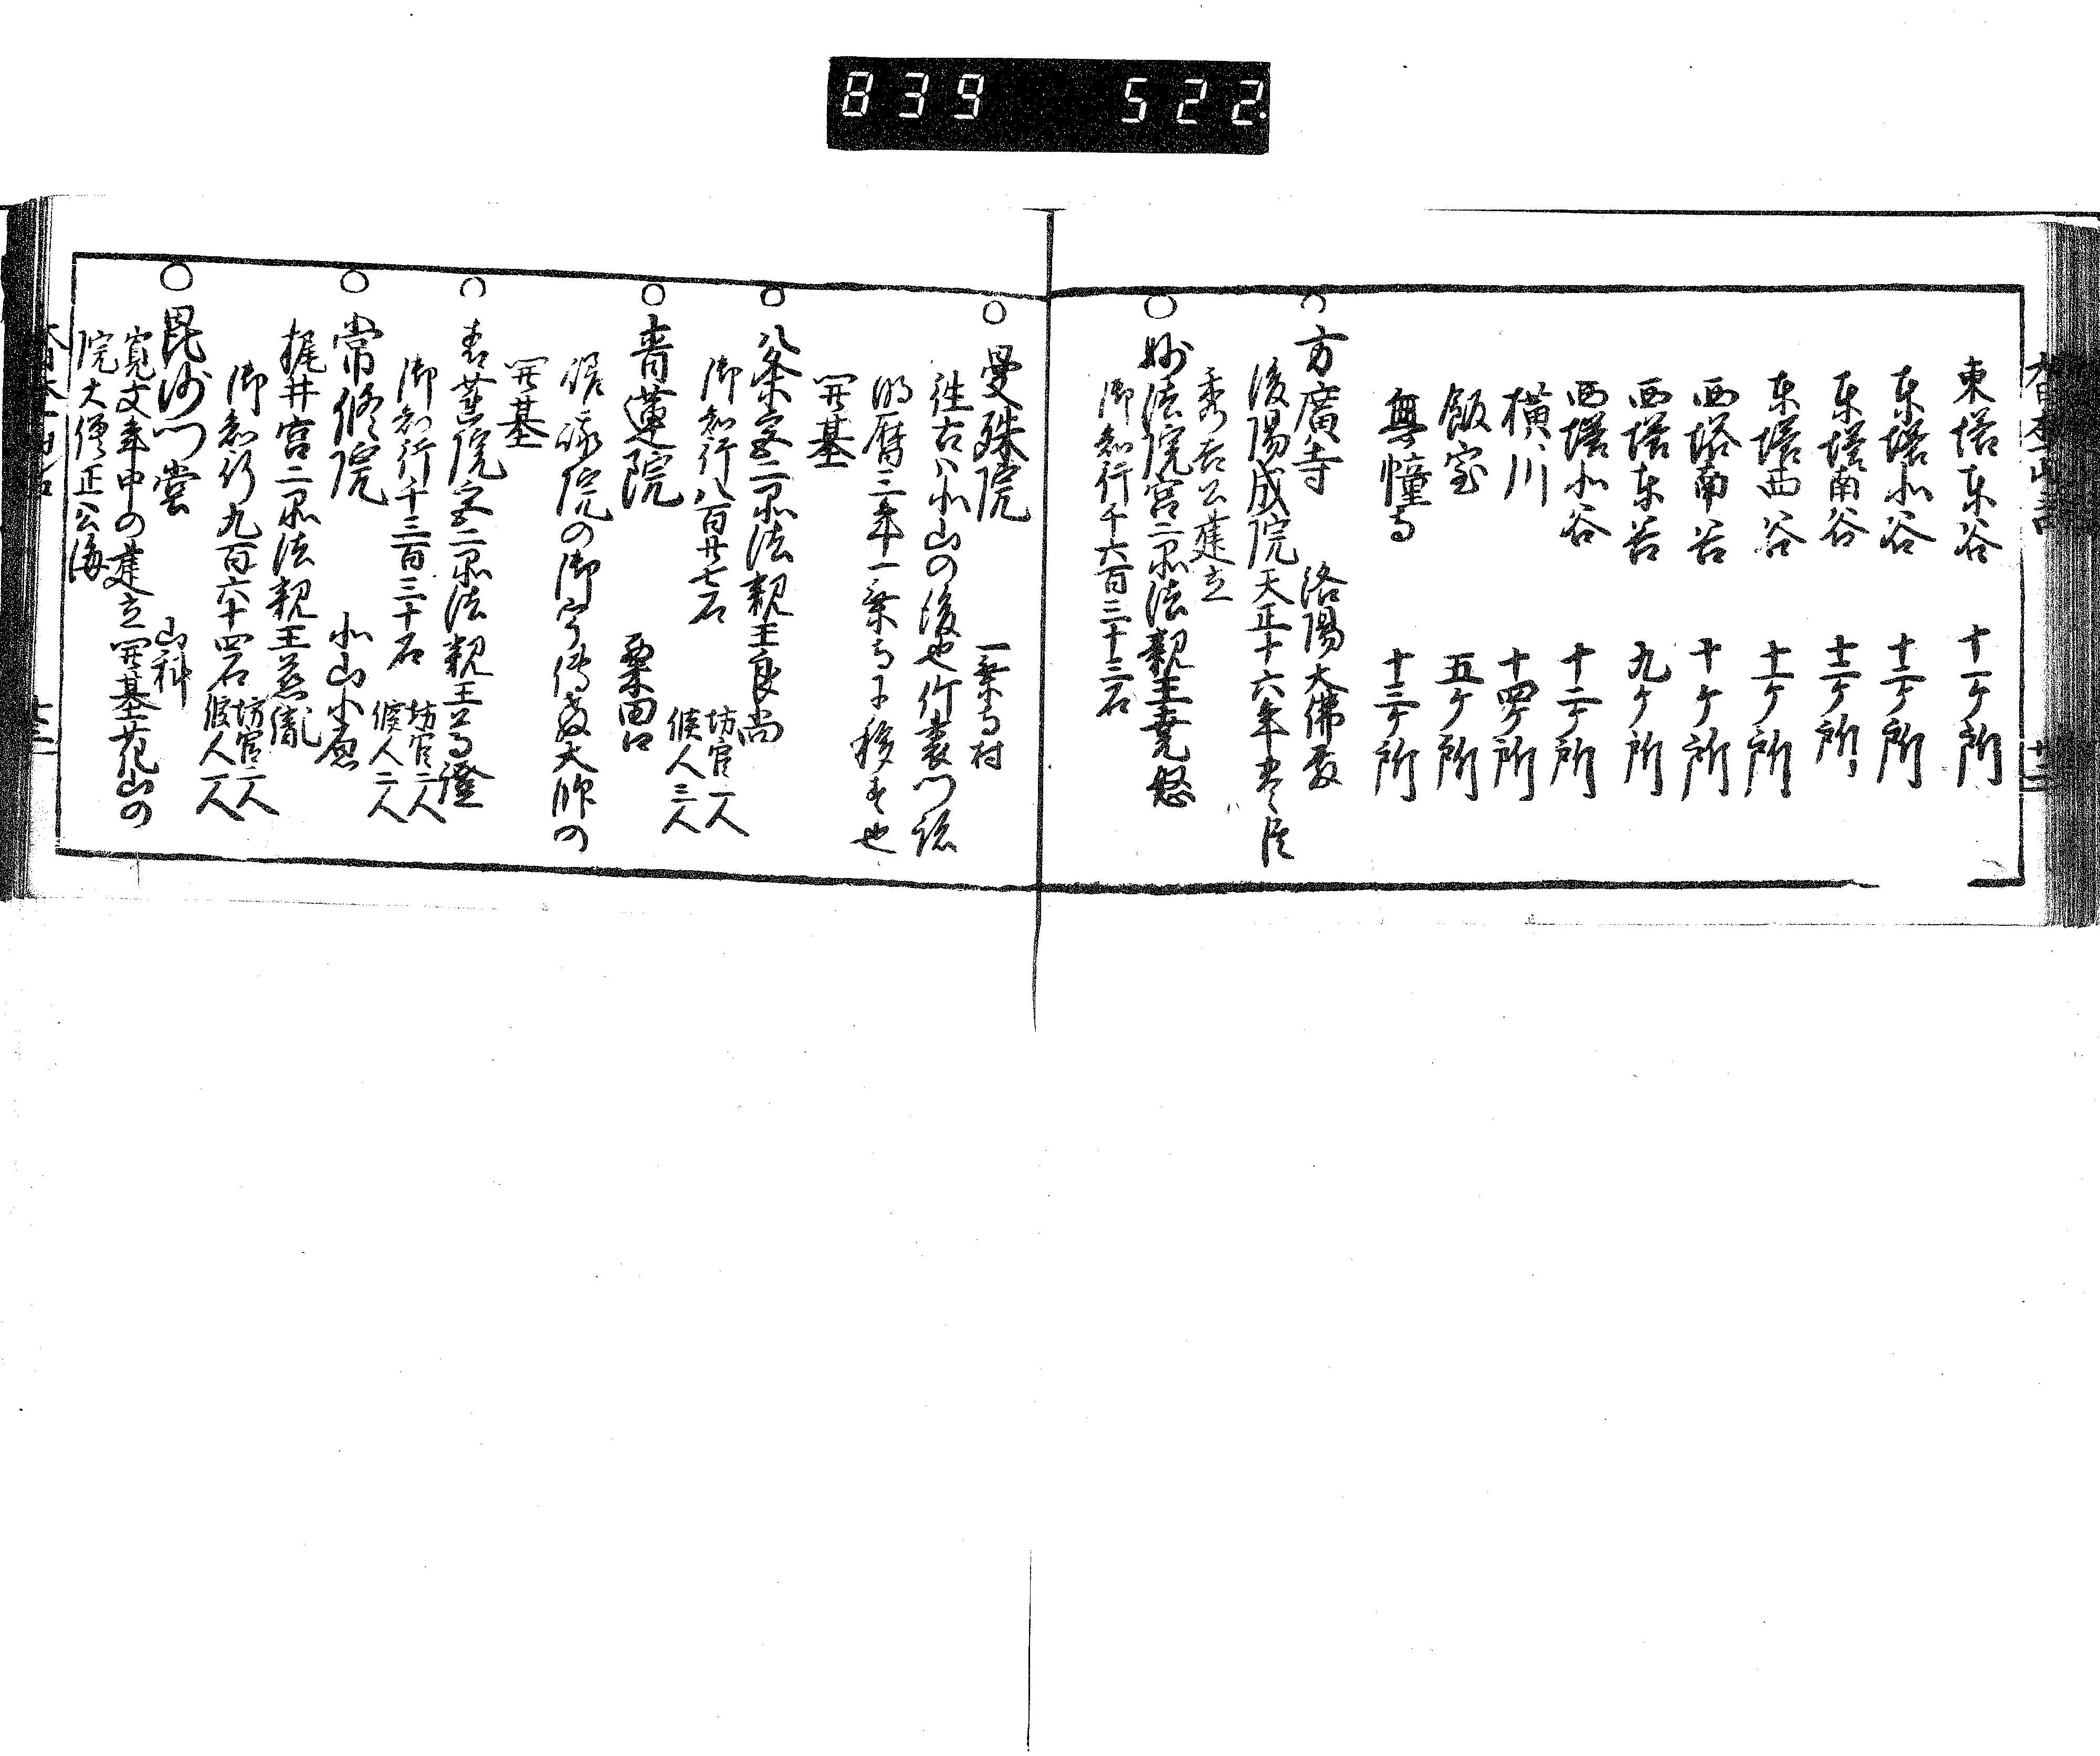 839 522
東塔東谷 十一ケ所
東塔北谷 十二ケ所
東塔南谷 十二ケ所
東塔西谷 十一ケ所
西塔南谷 十ケ所
西塔东谷 九ケ所
西塔北谷 十二ケ所
横川 十四ケ所
飯室 五ケ所
無憧寺 十三ケ所
○方廣寺 洛陽大佛殿
後陽成院天正十六年
秀吉公建立
○妙法院宮二品法親王尭恕
御知行千六百三十三石
○曼殊院 一乗寺村
往古ハ北山の後也竹裏門跡
明暦二年一乗寺に移す也
開基
○八条宮二品法親王良尚
御知行八百廿七石 坊官一人 候人三人
○青蓮院 粟田口
嵯峨院の御宇傳教大師の
開基
○青蓮院宮二品法親王尊證
御知行千三百三十石 坊官二人 候人二人
○常修院 北山小原
梶井宮二品法親王慈胤
御知行九百六十四石 坊官二人 候人一人
○毘沙門堂 山科
寛文年中の建立開基花山の
院大僧正公海